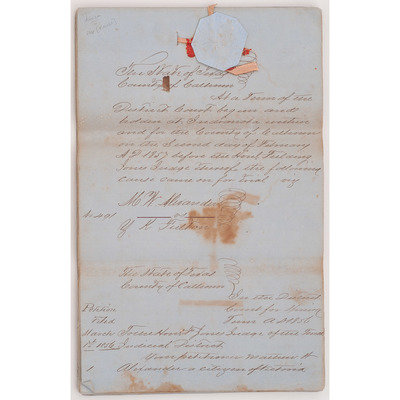 The State of Texas
County of Calhoun
At a Term of the
District Court begun and
holden at Indianola within
and for the County of Calhoun
on the Second day of February
A.D. 1857 before the Hon. Fielding
Jones Judge thereof the following
cause came on for trial viz
M. W.
No 401
vs
G. K.
The State of Texas
County of Calhoun
In the District
Court for Spring
Term A.D. 1856
Petition
Filed
March To the Hon. Jones Judge of the Tenth
1st 1856 Judicial District
Your petitioner H
1 Alexander a citizen of Victoria